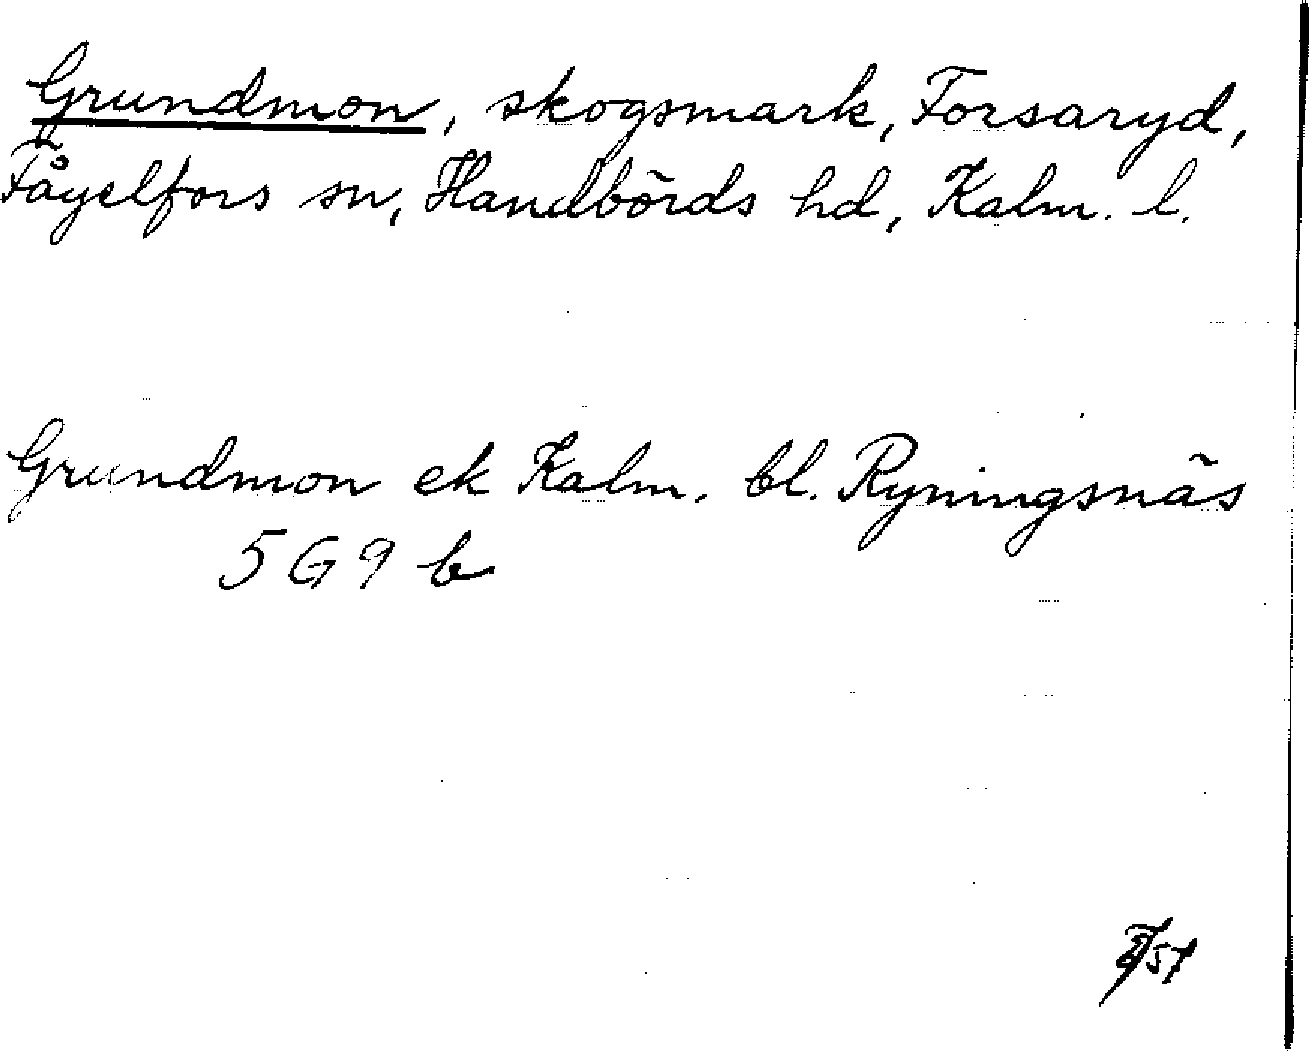 Grundmon, skogsmark, Forsaryd,
Fågelfors sn, Handbörds hd, Kalm. l.
Grundmon ek Kalm. bl. Ryningsnäs
5G9 b